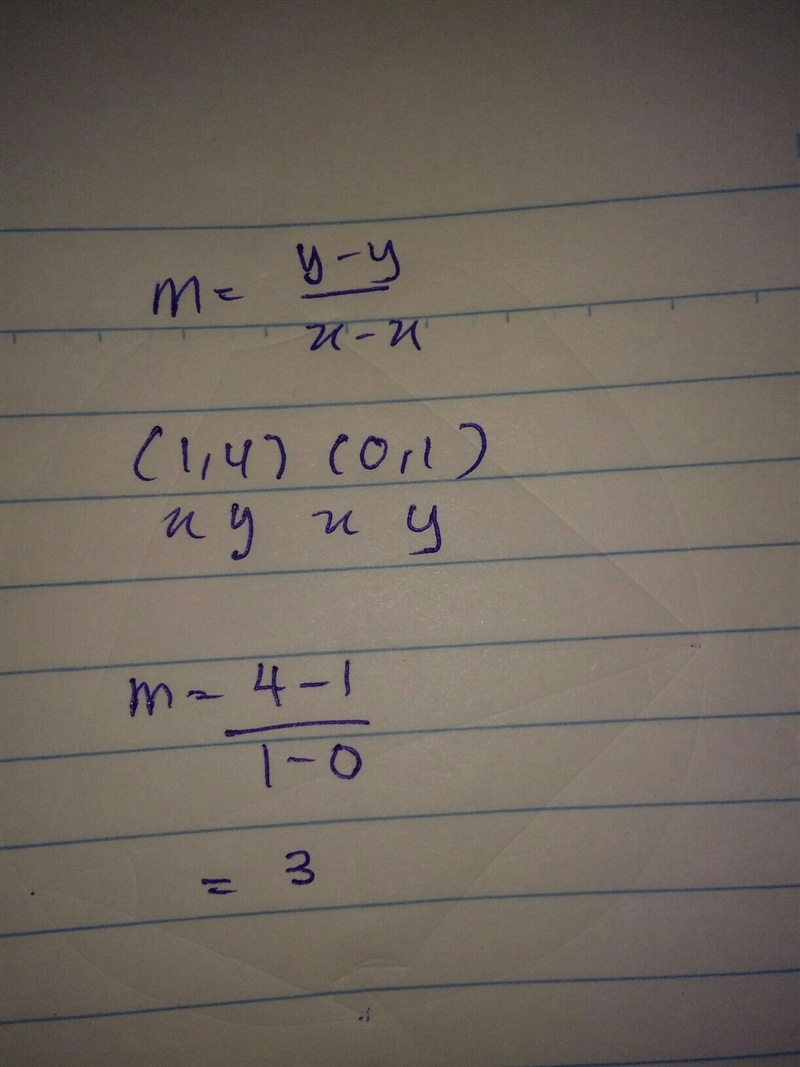 m = y-y / x-x
(1,4) (0,1)
x y x y
m = 4-1 / 1-0
= 3